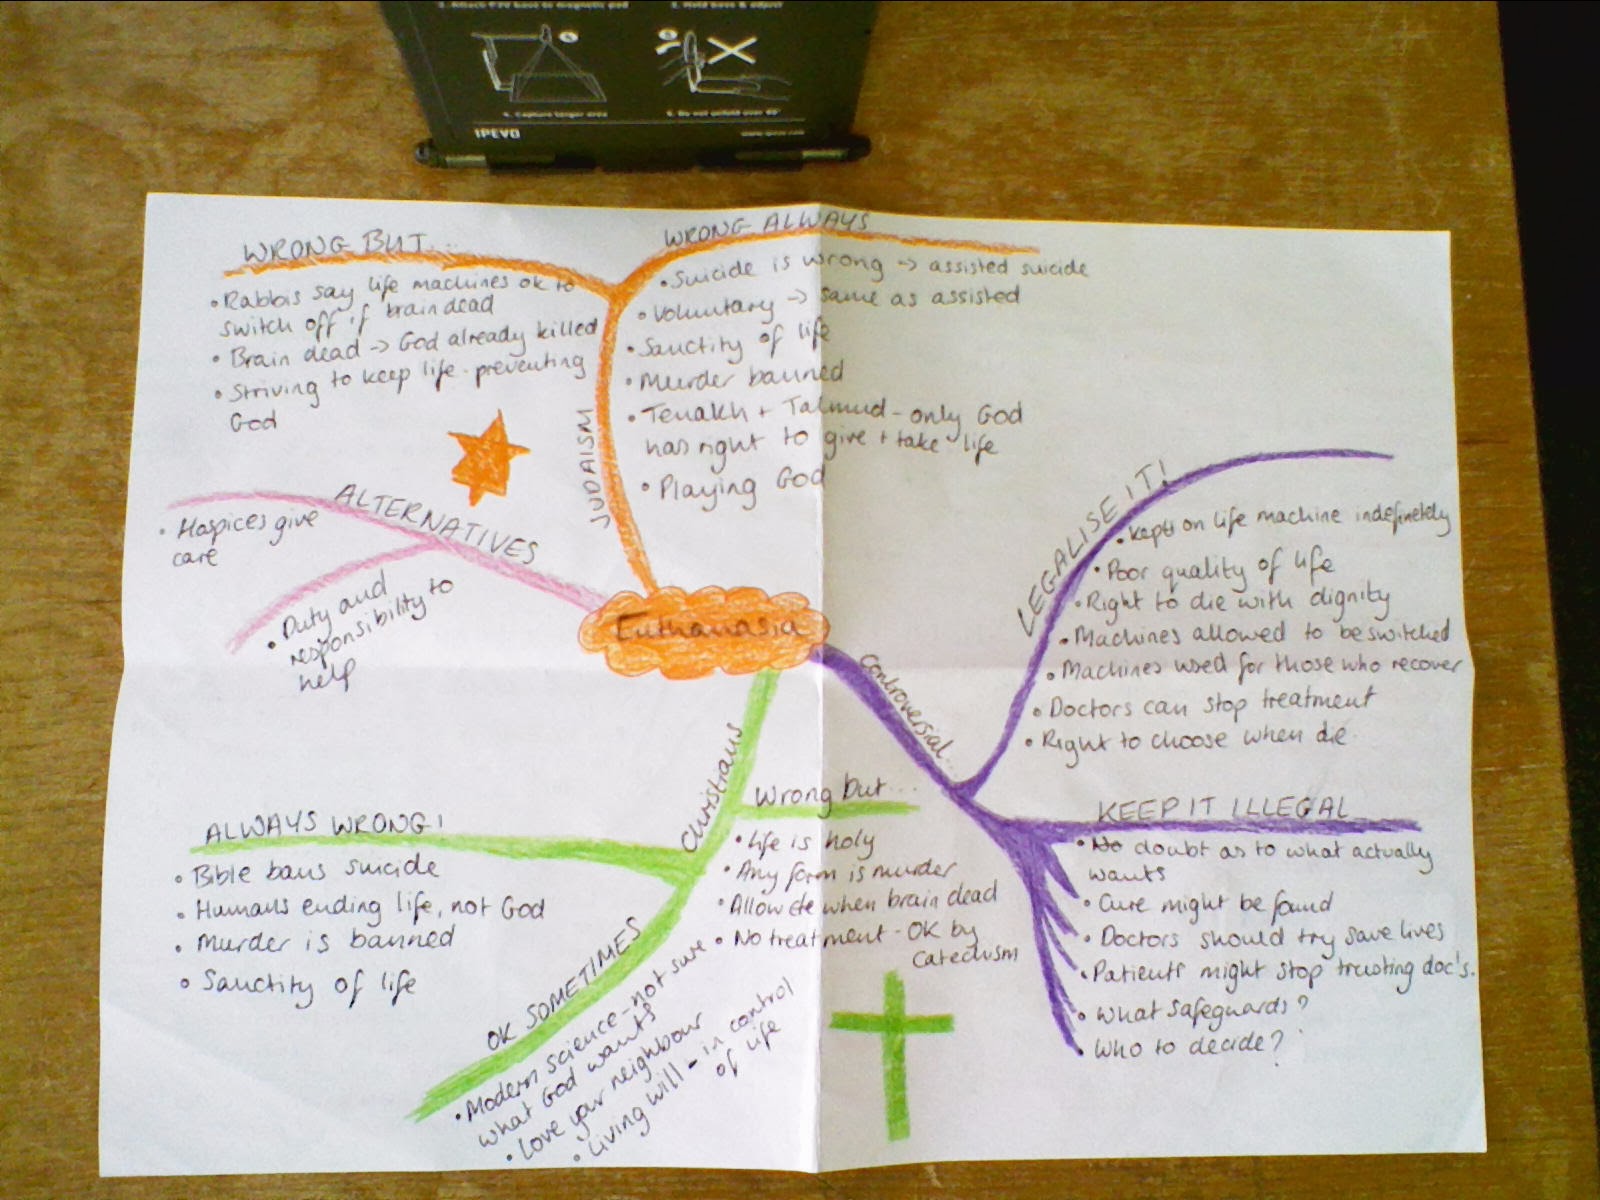 2. Attach P2V base to magnetic pad
3. Hold base & adjust
4. Capture larger area
5. Do not unfold over 90°
IPEVO
www.ipevo.com
WRONG BUT...
• Rabbis say life machines ok to
switch off if brain dead
• Brain dead -> God already killed
• Striving to keep life - preventing
God
WRONG ALWAYS
• Suicide is wrong -> assisted suicide
• Voluntary -> same as assisted
• Sanctity of life
• Murder banned
• Tenakh + Talmud - only God
has right to give + take life
• Playing God
JUDAISM
ALTERNATIVES
• Hospices give
care
• Duty and
responsibility to
help
Euthanasia
Controversial...
LEGALISE IT!
• Kept on life machine indefinetely
• Poor quality of life
• Right to die with dignity
• Machines allowed to be switched
• Machines used for those who recover
• Doctors can stop treatment
• Right to choose when die
KEEP IT ILLEGAL
• No doubt as to what actually
wants
• Cure might be found
• Doctors should try save lives
• Patients might stop trusting doc's.
• What safeguards?
• Who to decide?
Christians
ALWAYS WRONG!
• Bible bans suicide
• Humans ending life, not God
• Murder is banned
• Sanctity of life
Wrong but...
• Life is holy
• Any form is murder
• Allow when brain dead
• No treatment - OK by
Catechism
OK SOMETIMES
• Modern science - not sure
what God wants
• Love your neighbour
• Living will - in control
of life